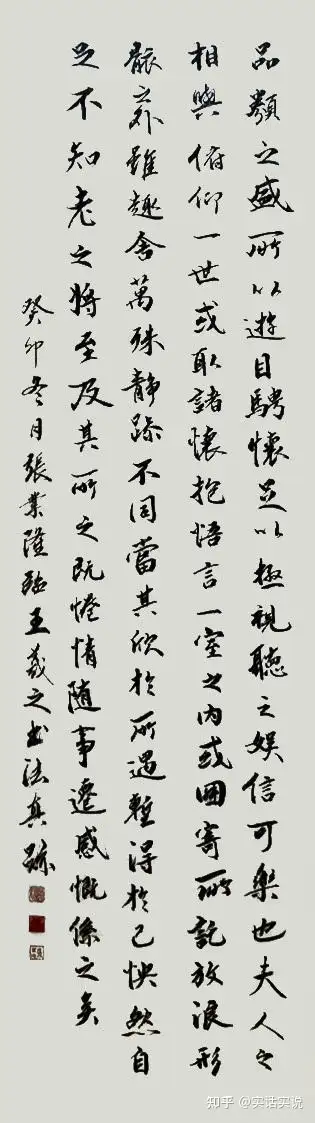 品類之盛所以遊目騁懷足以極視聽之娛信可樂也夫人之
相與俯仰一世或取諸懷抱悟言一室之內或因寄所託放浪形
骸之外雖趣舍萬殊靜躁不同當其欣於所遇暫得於己怏然自
足不知老之將至及其所之既惓情隨事遷感慨係之矣
癸卯冬月張業隆臨王羲之書法真跡
知乎 @实话实说